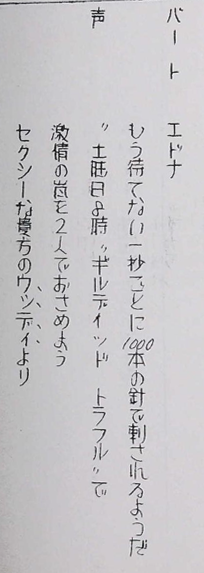 バート　エドナ
もう待てない一秒ごとに1000本の針で刺されるようだ
声　〝土曜日8時〝ギルディッド　トラフル〟で
激情の嵐を2人でおさめよう
セクシーな貴方のウッディより